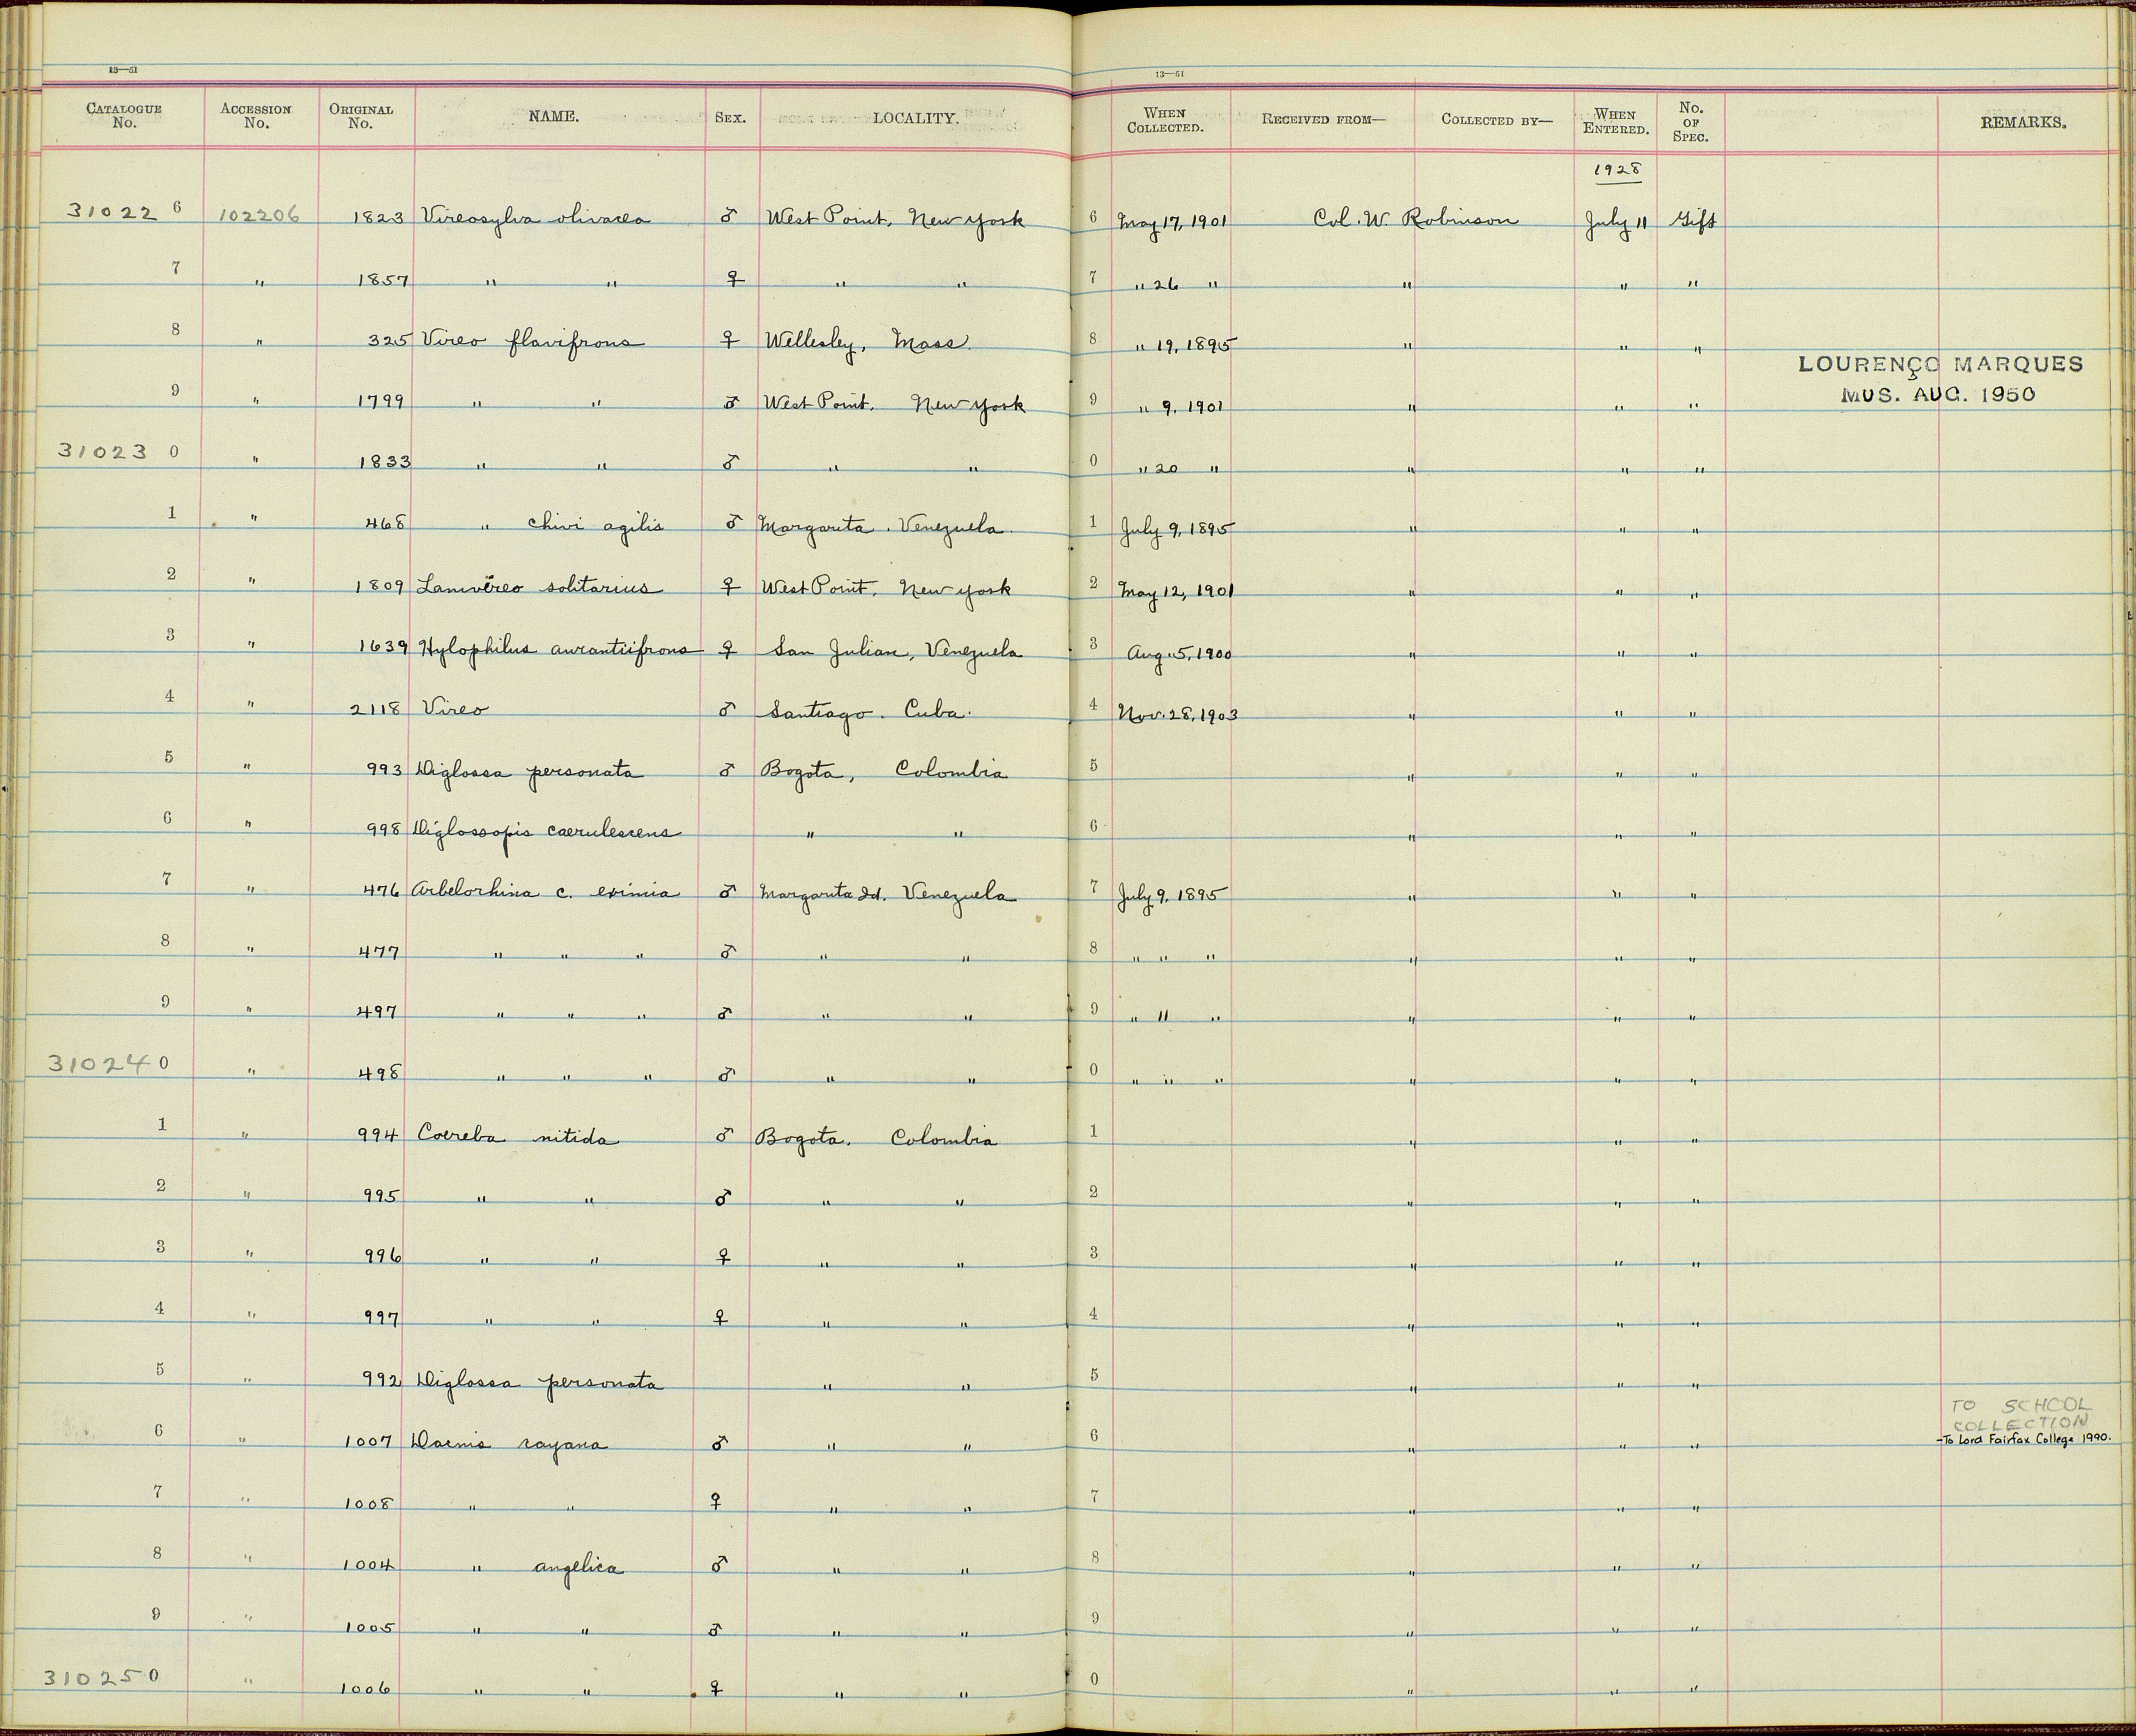 13—61
13—61
CATALOGUE No. ACCESSION No. ORIGINAL No. NAME. SEX. LOCALITY. WHEN COLLECTED. RECEIVED FROM— COLLECTED BY— WHEN ENTERED. No. OF SPEC. REMARKS.
1928
31022 6 102206 1823 Vireosylva olivacea ♂ West Point, New York 6 May 17, 1901 Col. W. Robinson July 11 Gift
7 " 1857 " " ♀ " " 7 " 26 " " " "
8 " 325 Vireo flavifrons ♀ Wellesley, Mass. 8 " 19, 1895 " " "
LOURENÇO MARQUES
MUS. AUG. 1950
9 " 1799 " " ♂ West Point, New York 9 " 9, 1901 " " "
31023 0 " 1833 " " ♂ " " 0 " 20 " " " "
1 " 468 " chivi agilis ♂ Margarita, Venezuela. 1 July 9, 1895 " " "
2 " 1809 Lanivireo solitarius ♀ West Point, New York 2 May 12, 1901 " " "
3 " 1639 Hylophilus aurantiifrons ♀ San Julian, Venezuela 3 Aug. 5, 1900 " " "
4 " 2118 Vireo ♂ Santiago. Cuba. 4 Nov. 28, 1903 " " "
5 " 993 Diglossa personata ♂ Bogota, Colombia 5 " " "
6 " 998 Diglossopis caerulescens " " 6 " " "
7 " 476 Arbelorhina c. eximia ♂ Margarita Id. Venezuela 7 July 9, 1895 " " "
8 " 477 " " " ♂ " " 8 " " " " " "
9 " 497 " " " ♂ " " 9 " 11 " " " "
31024 0 " 498 " " " ♂ " " 0 " " " " " "
1 " 994 Coereba nitida ♂ Bogota. Colombia 1 " " "
2 " 995 " " ♂ " " 2 " " "
3 " 996 " " ♀ " " 3 " " "
4 " 997 " " ♀ " " 4 " " "
5 " 992 Diglossa personata " " 5 " " "
TO SCHOOL
COLLECTION
6 " 1007 Dacnis cayana ♂ " " 6 " " " -To Lord Fairfax College 1990.
7 " 1008 " " ♀ " " 7 " " "
8 " 1004 " angelica ♂ " " 8 " " "
9 " 1005 " " ♂ " " 9 " " "
31025 0 " 1006 " " ♀ " " 0 " " "